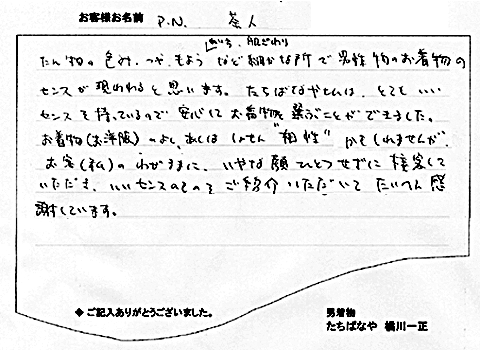 お客様お名前 P.N. 茶人
たん物の色み、つや、もよう 風あい、肌ざわり など細かな所で男性物のお着物の
センスが現われると思います。たちばなやさんは、とてもいい
センスを持っているので安心してお着物を選ぶことができました。
お着物(お洋服)のよし、あしは しょせん"相性"かもしれませんが、
お客(私)のわがままに、いやな顔ひとつせずに接客して
いただき、いいセンスのものをご紹介いただいて たいへん感
謝しています。
◆ご記入ありがとうございました。
男着物
たちばなや 橘川一正